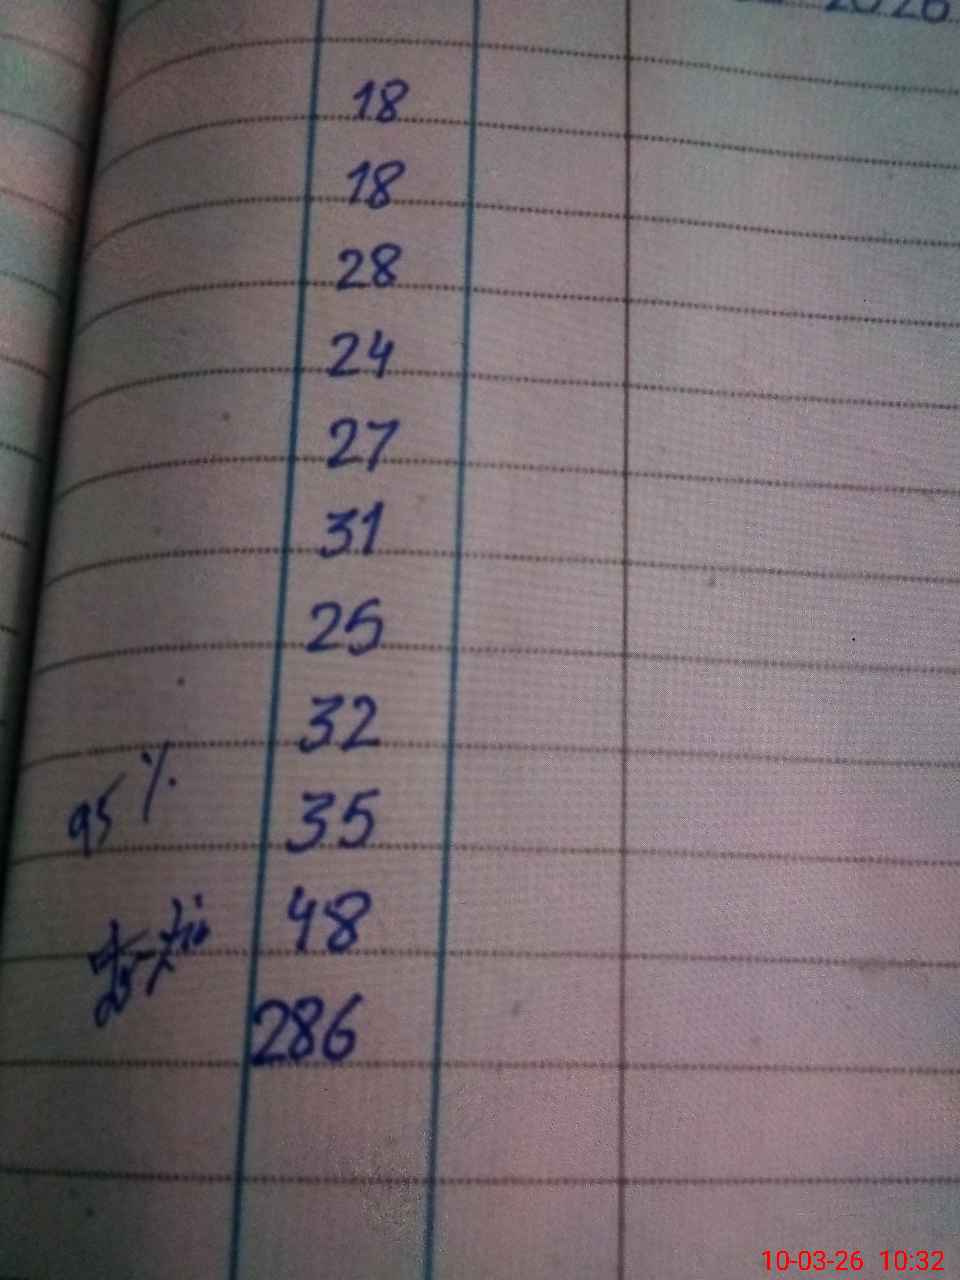 2026
18
18
28
24
27
31
25
32
95 %
35
48
286
10-03-26 10:32